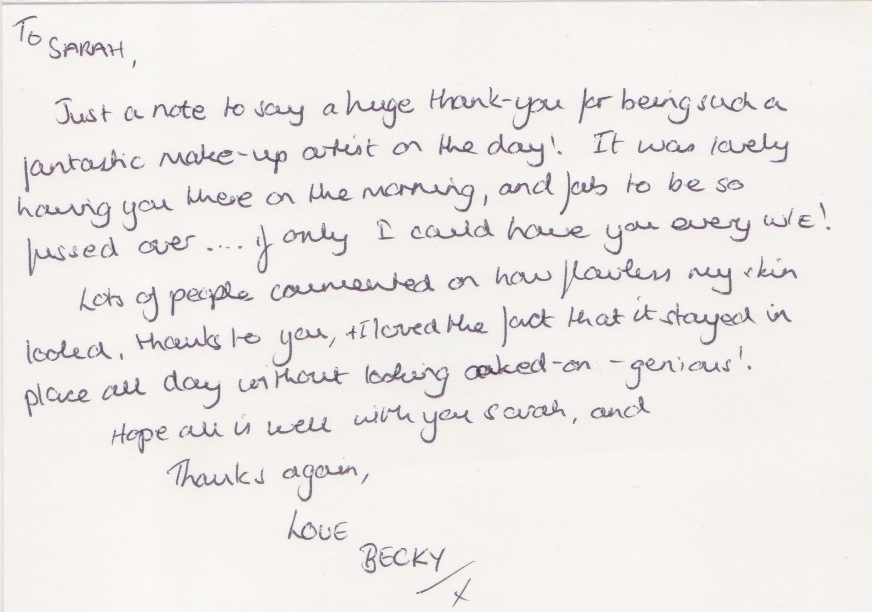 To SARAH,
Just a note to say a huge thank-you for being such a
fantastic make-up artist on the day! It was lovely
having you there on the morning, and fab to be so
fussed over .... if only I could have you every w/E!
Lots of people commented on how flawless my skin
looked, thanks to you, + I loved the fact that it stayed in
place all day without looking caked-on - genious!
Hope all is well with you Sarah, and
Thanks again,
LOVE
BECKY
x